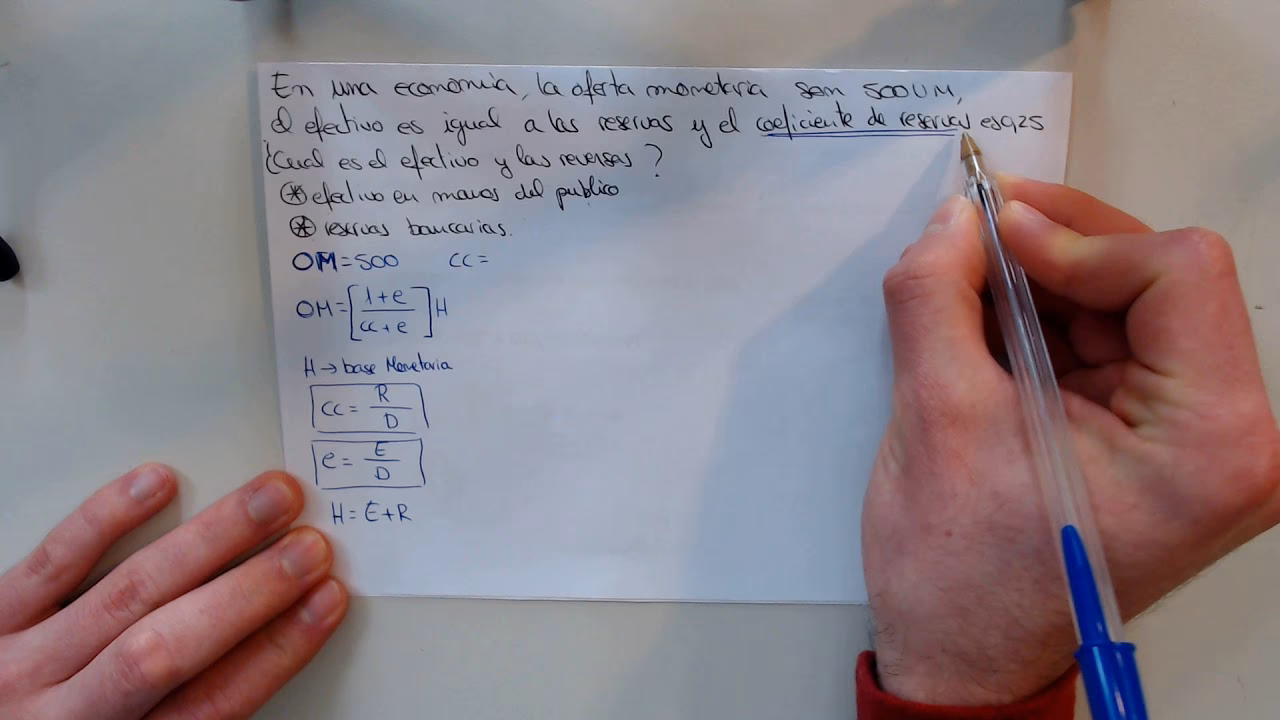 En una economia, la oferta monetaria sem 500UM,
el efectivo es igual a las reservas y el coeficiente de reservas es 0,25
¿Cual es el efectivo y las reversas?
* efectivo en manos del publico
* reservas bancarias.
OM=500 CC=
OM=[1+e / cc+e]H
H → base Monetaria
CC= R / D
e= E / D
H= E+R